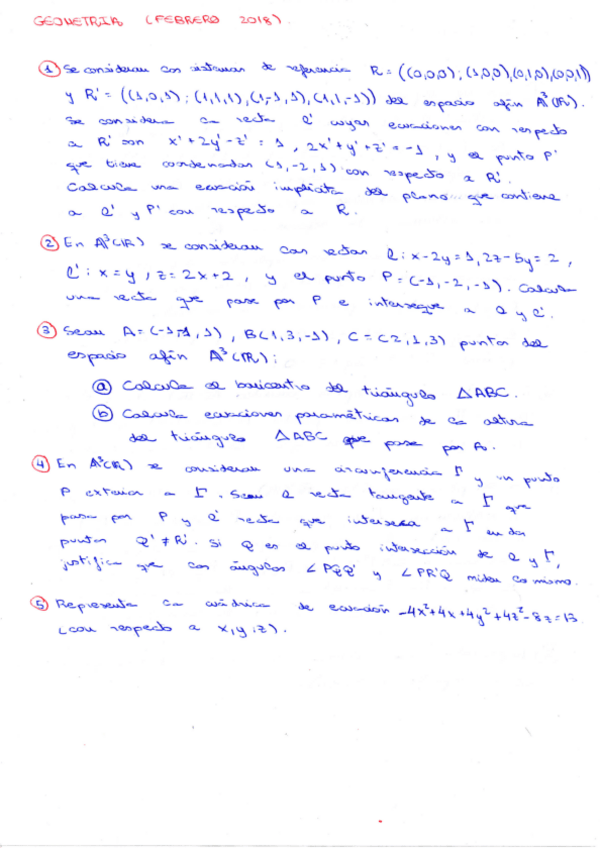 GEOMETRIA (FEBRERO 2018)
① Se consideran los sistemas de referencia R = ((0,0,0); (1,0,0),(0,1,0),(0,0,1))
y R' = ((1,0,1); (1,1,1), (1,-1,1), (1,1,-1)) del espacio afín A³(R).
Se considera la recta l' cuyas ecuaciones con respecto
a R' son x'+2y'-z' = 1 , 2x'+y'+z' = -1 , y el punto P'
que tiene coordenadas (1,-2,1) con respecto a R'.
Calcula una ecuación implícita del plano que contiene
a l' y P' con respecto a R.
② En A³(R) se consideran las rectas l: x-2y=1, 2z-5y=2 ,
l': x=y , z=2x+2 , y el punto P=(-1,-2,-1). Calcula
una recta que pase por P e interseque a l y l'.
③ Sean A=(-1,1,1) , B(1,3,-1) , C=(2,1,3) puntos del
espacio afín A³(R):
ⓐ Calcula el baricentro del triángulo ΔABC.
ⓑ Calcula ecuaciones paramétricas de la altura
del triángulo ΔABC que pase por A.
④ En A²(R) se consideran una circunferencia Γ y un punto
P exterior a Γ. Sean l recta tangente a Γ que
pasa por P y l' recta que interseca a Γ en dos
puntos Q' ≠ R'. Si Q es el punto intersección de l y Γ,
justifica que los ángulos ∠PQQ' y ∠PR'Q miden lo mismo.
⑤ Representa la cuádrica de ecuación -4x²+4x+4y²+4z²-8z=13
(con respecto a x,y,z).